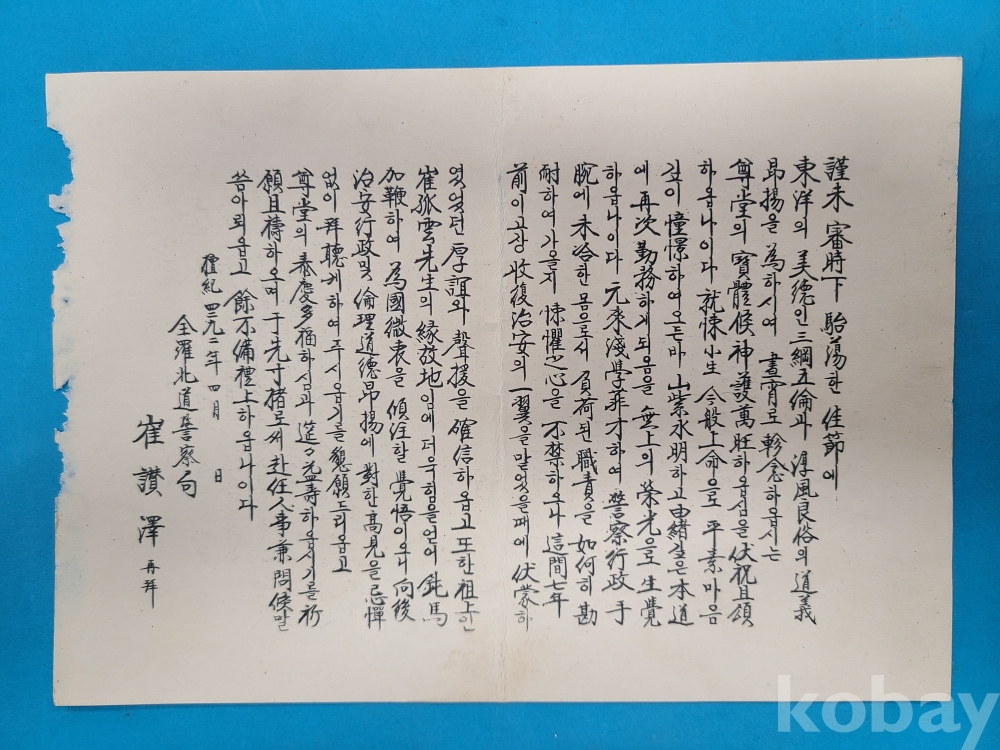 謹未審時下 駘蕩한 佳節에
東洋의 美德인 三綱五倫과 淳風良俗의 道義
昂揚을 為하시여 晝宵로 軫念하옵시는
尊堂의 寶體候神護萬旺하옵심을 伏祝且頌
하옵나이다 就悚小生 今般上命으로 平素마음
깊이 憧憬하여오든바 山紫水明하고 由緖깊은 本道
에 再次勤務하게되옴을 無上의 榮光으로 生覺
하옵나이다 元來淺學菲才하여 警察行政 手
腕에 未洽한 몸으로서 負荷된 職責을 如何히 勘
耐하여가을지 悚懼之心을 不禁하오나 這間七年
前 이고장 收復治安의 一翼을 맡었을때에 伏蒙하
였었던 厚誼와 聲援을 確信하옵고 또한 祖上인
崔孤雲先生의 緣故地임에 더우힘을얻어 鈍馬
加鞭하여 為國微衷을 傾注할 覺悟이오니 向後
治安行政및 倫理道德昂揚에 對한 高見을 忌憚
없이 拜聽케하여주시옵기를 懇願드리옵고
尊堂의 泰慶多福하심과 筵筵益壽하옵시기를 祈
願且禱하오며 于先寸楮로써 赴任人事兼問候말
씀아뢰옵고 餘不備禮上하옵나이다
檀紀 四二九二年 四月 日
全羅北道警察局
崔讚澤 再拜
kobay